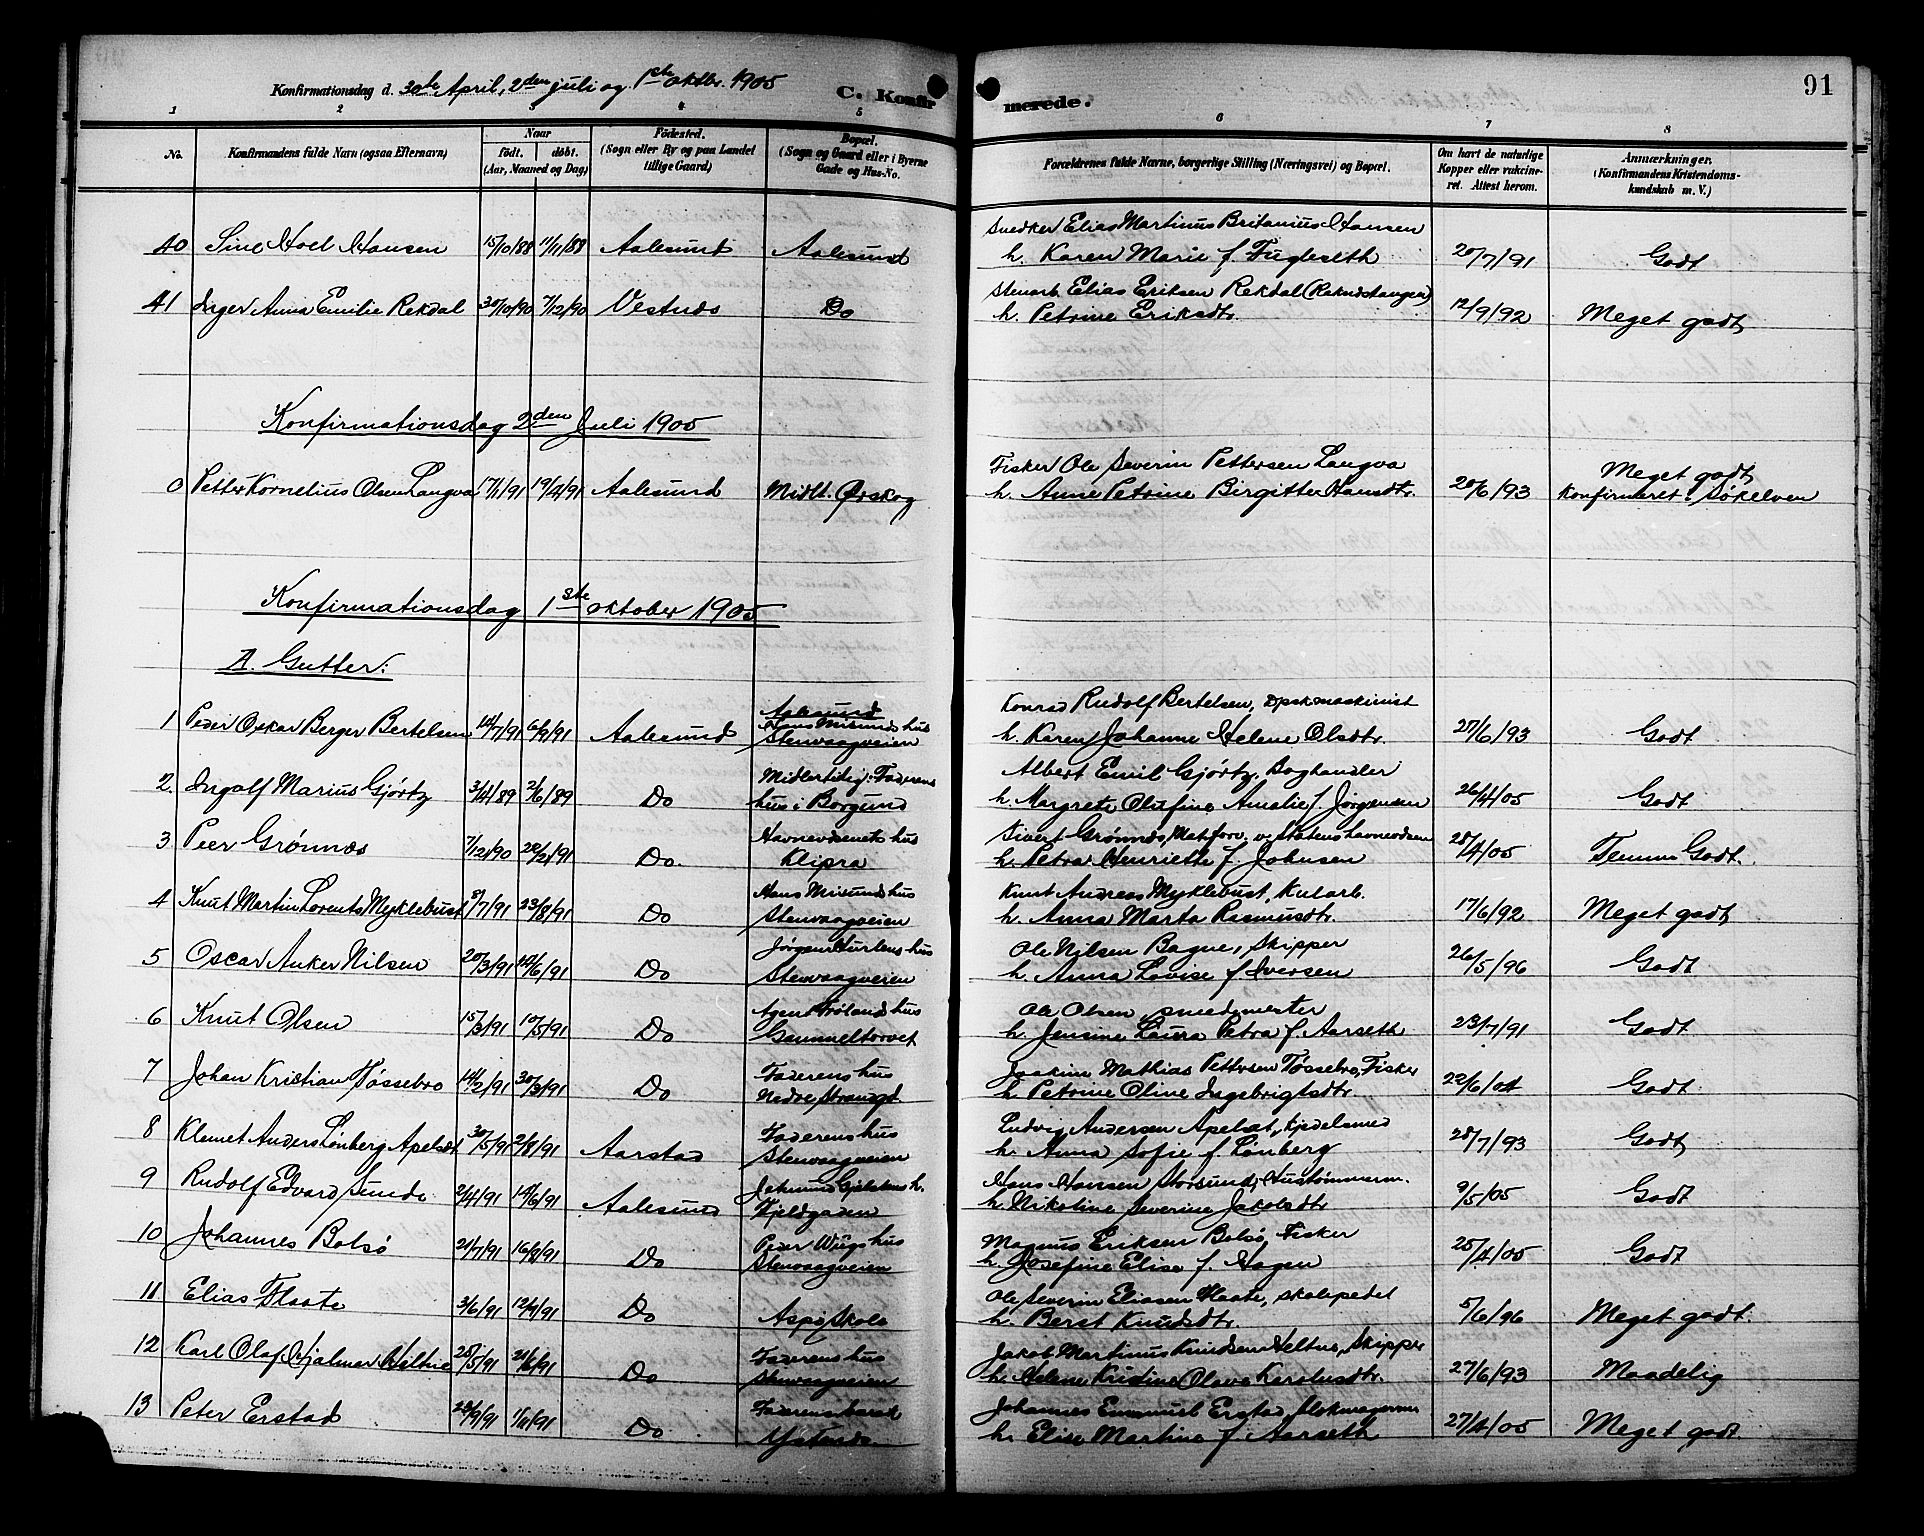 Konfirmationsdag d. 30te April, 2den juli og 1ste oktbr. 1905
C. Konfirmerede.
91
1 2 3 4 5 6 7 8
No. Konfirmandens fulde Navn (ogsaa Efternavn) Naar født. døbt. (Aar, Maaned og Dag) Fødested. (Sogn eller By og paa Landet tillige Gaard) Bopæl. (Sogn og Gaard eller i Byerne Gade og Hus-No. Forældrenes fulde Navne, borgerlige Stilling (Næringsvei) og Bopæl. Om havt de naturlige Kopper eller vakcineret. Attest herom. Anmærkninger. (Konfirmandens Kristendomskundskab m. V.)
Snedker Elias Martinus Britanius Hansen
40 Sine Hoel Hansen 15/10/88 11/11/88 Aalesund Aalesund h. Karen Marie f. Fugleseth 20/7/91 Godt
Stenarb. Elias Eriksen Rekdal (Rekdstangen)
41 Inger Anna Emilie Rekdal 30/10/90 7/12/90 Vestnes Do h. Petrine Eriksdtr. 12/9/92 Meget godt
Konfirmationsdag 2den Juli 1905
Fisker Ole Severin Pettersen Langva Meget godt
0 Petter Kornelius Olsen Langva 17/1/91 19/4/91 Aalesund Midlt. Ørskog h. Anne Petrine Birgitte Hansdtr. 20/6/93 Konfirmeret i Søkelven
Konfirmationsdag 1ste oktober 1905
A. Gutter:
Aalesund Konrad Rudolf Bertelsen, Dpskmaskinist
1 Peder Oskar Berger Bertelsen 14/7/91 6/9/91 Aalesund Hans Misunds hus Stenvaagveien h. Karen Johanne Helene Olsdtr. 27/6/93 Godt
Midlertidig: Faderens Albert Emil Gjørtz, Boghandler
2. Ingolf Marius Gjørtz 3/4/89 2/6/89 Do hus i Borgund h. Margrete Olufine Amalie f. Jørgensen 26/4/05 Godt
Havnevæsenets hus Sivert Grønnes, Mat.forv. v. Statens havnevæsen
3 Peer Grønnes 7/12/90 20/2/91 Do. Klipra h. Petra Henriette f. Johnsen 28/4/05 Temme Godt.
Hans Misunds hus Knut Andreas Myklebust, Kularb.
4 Knut Martin Lorents Myklebust 8/7/91 23/8/91 Do Stenvaagveien h. Anna Marta Rasmusdtr. 17/6/92 Meget godt
Jørgen Hurlens hus Ole Nilsen Bagne, Skipper
5 Oscar Anker Nilsen 20/3/91 14/6/91 Do Stenvaagveien h. Anna Lovise f. Iversen 26/5/96 Godt
Agent Frølands hus Ole Olsen, smedmester
6 Knut Olsen 15/3/91 10/5/91 Do Gammeltorvet h. Jensine Laura Petra f. Aarseth 23/7/91 Godt
Faderens hus Joakim Mathias Pettersen Tøssebro, Fisker
7 Johan Kristian Tøssebro 14/2/91 30/3/91 Do Nedre Strandgt h. Petrine Oline Ingebrigtsdtr. 22/6/04 Godt
Faderens hus Ludvig Andersen Apelsæt, Kjedelsmed
8 Klemet Anders Lønberg Apelsæt 30/5/91 2/8/91 Aarstad Stenvaagveien h. Anna Sofie f. Lønberg 28/7/93 Godt
Hans Hansen Storsunde, Hustømmerm.
9 Rudolf Edvard Sunde 2/4/91 14/6/91 Aalesund Kjeldgaden h. Nikoline Severine Jakobsdtr. 9/5/05 Godt
Peder Wiigs hus Magnus Eriksen Bolsø, Fisker
10 Johannes Bolsø 21/7/91 16/8/91 Do Stenvaagveien h. Josefine Elise f. Hagen 25/4/05 Godt
Ole Severin Eliasen Flaate, skolepedel
11 Elias Flaate 3/6/91 12/9/91 Do Aspø Skole h. Beret Knudsdtr. 5/6/96 Meget godt.
Faderens hus Jakob Martinus Knudsen Heltne, Skipper
12 Karl Olaf Hjalmar Heltne 28/5/91 21/6/91 Do Stenvaagveien h. Helene Kristine Olava Karolusdtr. 27/6/93 Maadelig
Johannes Emanuel Erstad, Blokmagersv.
13 Peter Erstad 28/9/91 1/11/91 Do h. Elise Martine f. Aarseth 27/4/05 Meget godt.